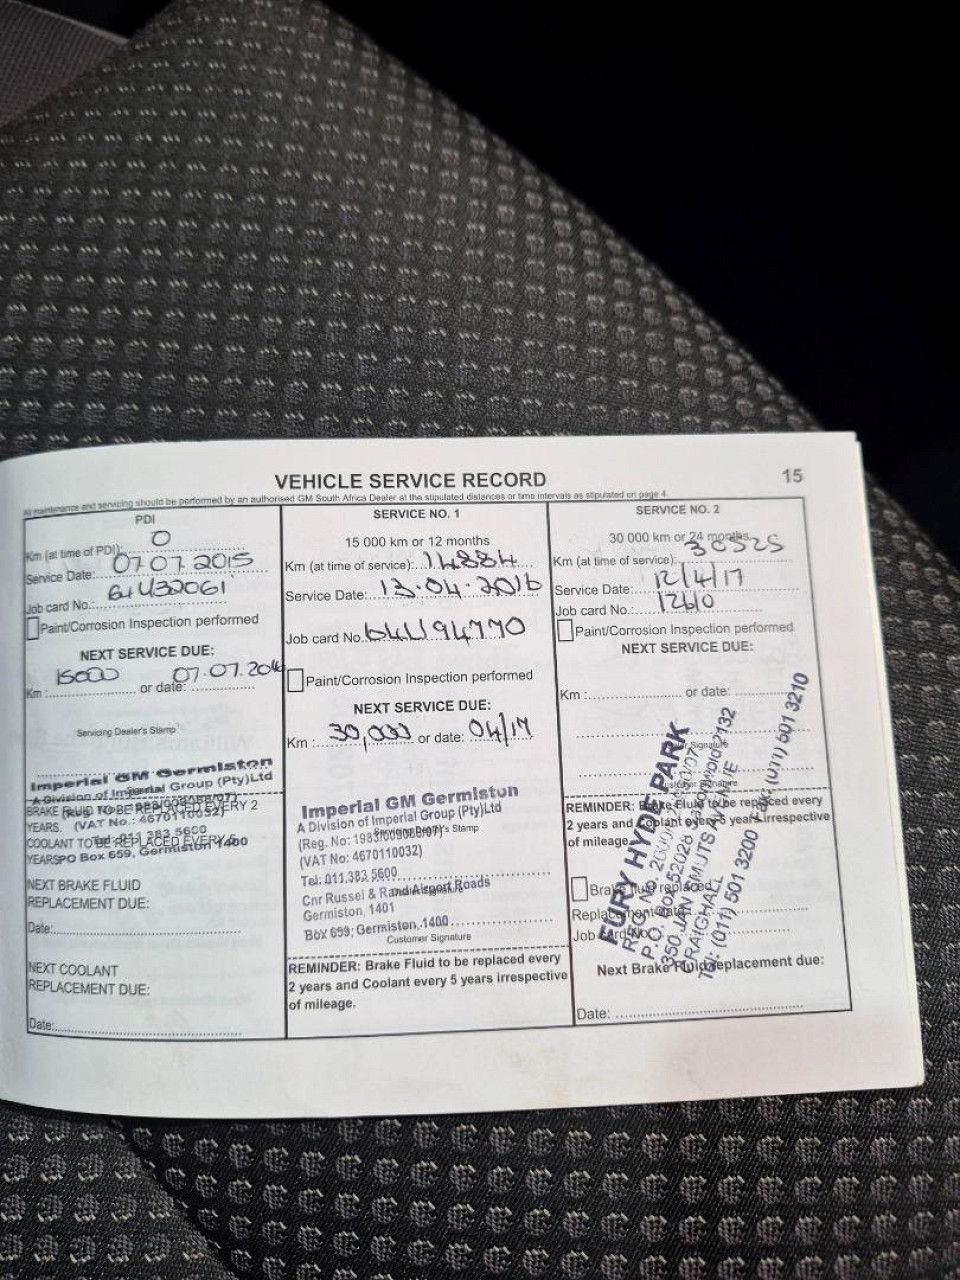 VEHICLE SERVICE RECORD
15
All maintenance and servicing should be performed by an authorised GM South Africa Dealer at the stipulated distances or time intervals as stipulated on page 4.
PDI
Km (at time of PDI): 0
Service Date: 07.07.2015
Job card No.:
Paint/Corrosion Inspection performed
NEXT SERVICE DUE:
Km : 15000 or date: 07.07.2016
Servicing Dealer's Stamp
Imperial GM Germiston
A Division of Imperial Group (Pty)Ltd
BRAKE FLUID TO BE REPLACED EVERY 2
YEARS. (VAT No.: 4670110032)
Tel: 011 383 5600
COOLANT TO BE REPLACED EVERY 5
YEARS PO Box 659, Germiston 1400
NEXT BRAKE FLUID
REPLACEMENT DUE:
Date:
NEXT COOLANT
REPLACEMENT DUE:
Date:
SERVICE NO. 1
15 000 km or 12 months
Km (at time of service): 14884
Service Date: 13.04.2016
Job card No.
Paint/Corrosion Inspection performed
NEXT SERVICE DUE:
Km : 30,000 or date: 04/17
Imperial GM Germiston
A Division of Imperial Group (Pty)Ltd
Servicing Dealer's Stamp
(VAT No: 4670110032)
Tel: 011 383 5600
Cnr Russel & Rand Airport Roads
Germiston, 1401
Box 659, Germiston, 1400
Customer Signature
REMINDER: Brake Fluid to be replaced every
2 years and Coolant every 5 years irrespective
of mileage.
SERVICE NO. 2
30 000 km or 24 months
Km (at time of service): 30525
Service Date: 12/4/17
Job card No.: 1260
Paint/Corrosion Inspection performed
NEXT SERVICE DUE:
Km : or date:
Signature
Customer Signature
FURY HYDE PARK
P.O. BOX 52028
350 JAN SMUTS AVENUE
CRAIGHALL
Tel: (011) 501 3200 (011) 501 3210
REMINDER: Brake Fluid to be replaced every
2 years and Coolant every 5 years irrespective
of mileage.
Brake fluid replaced
Replacement date:
Job Card No.
Next Brake Fluid replacement due:
Date: